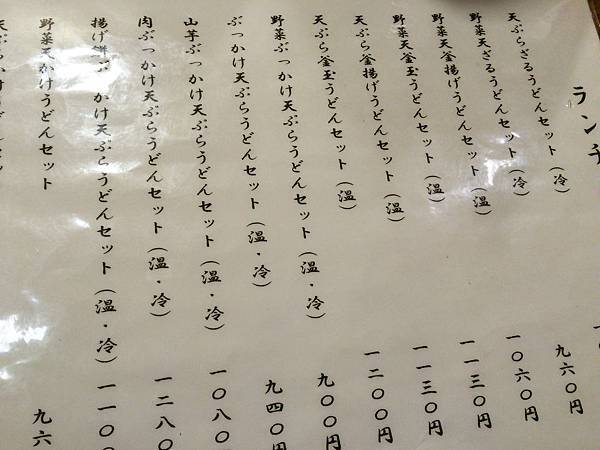 ランチ
天ぷらざるうどんセット(冷)
野菜天ざるうどんセット(冷) 九六〇円
野菜天釜揚げうどんセット(温) 一〇六〇円
野菜天釜玉うどんセット(温) 一一三〇円
天ぷら釜揚げうどんセット(温) 一一三〇円
天ぷら釜玉うどんセット(温) 一二〇〇円
野菜ぶっかけ天ぷらうどんセット(温・冷) 九〇〇円
ぶっかけ天ぷらうどんセット(温・冷) 九四〇円
山芋ぶっかけ天ぷらうどんセット(温・冷) 一〇八〇
肉ぶっかけ天ぷらうどんセット(温・冷) 一二八〇
揚げ餅ぶっかけ天ぷらうどんセット(温・冷) 一一〇〇
野菜天かけうどんセット 九六
天ぷらかけうどんセット